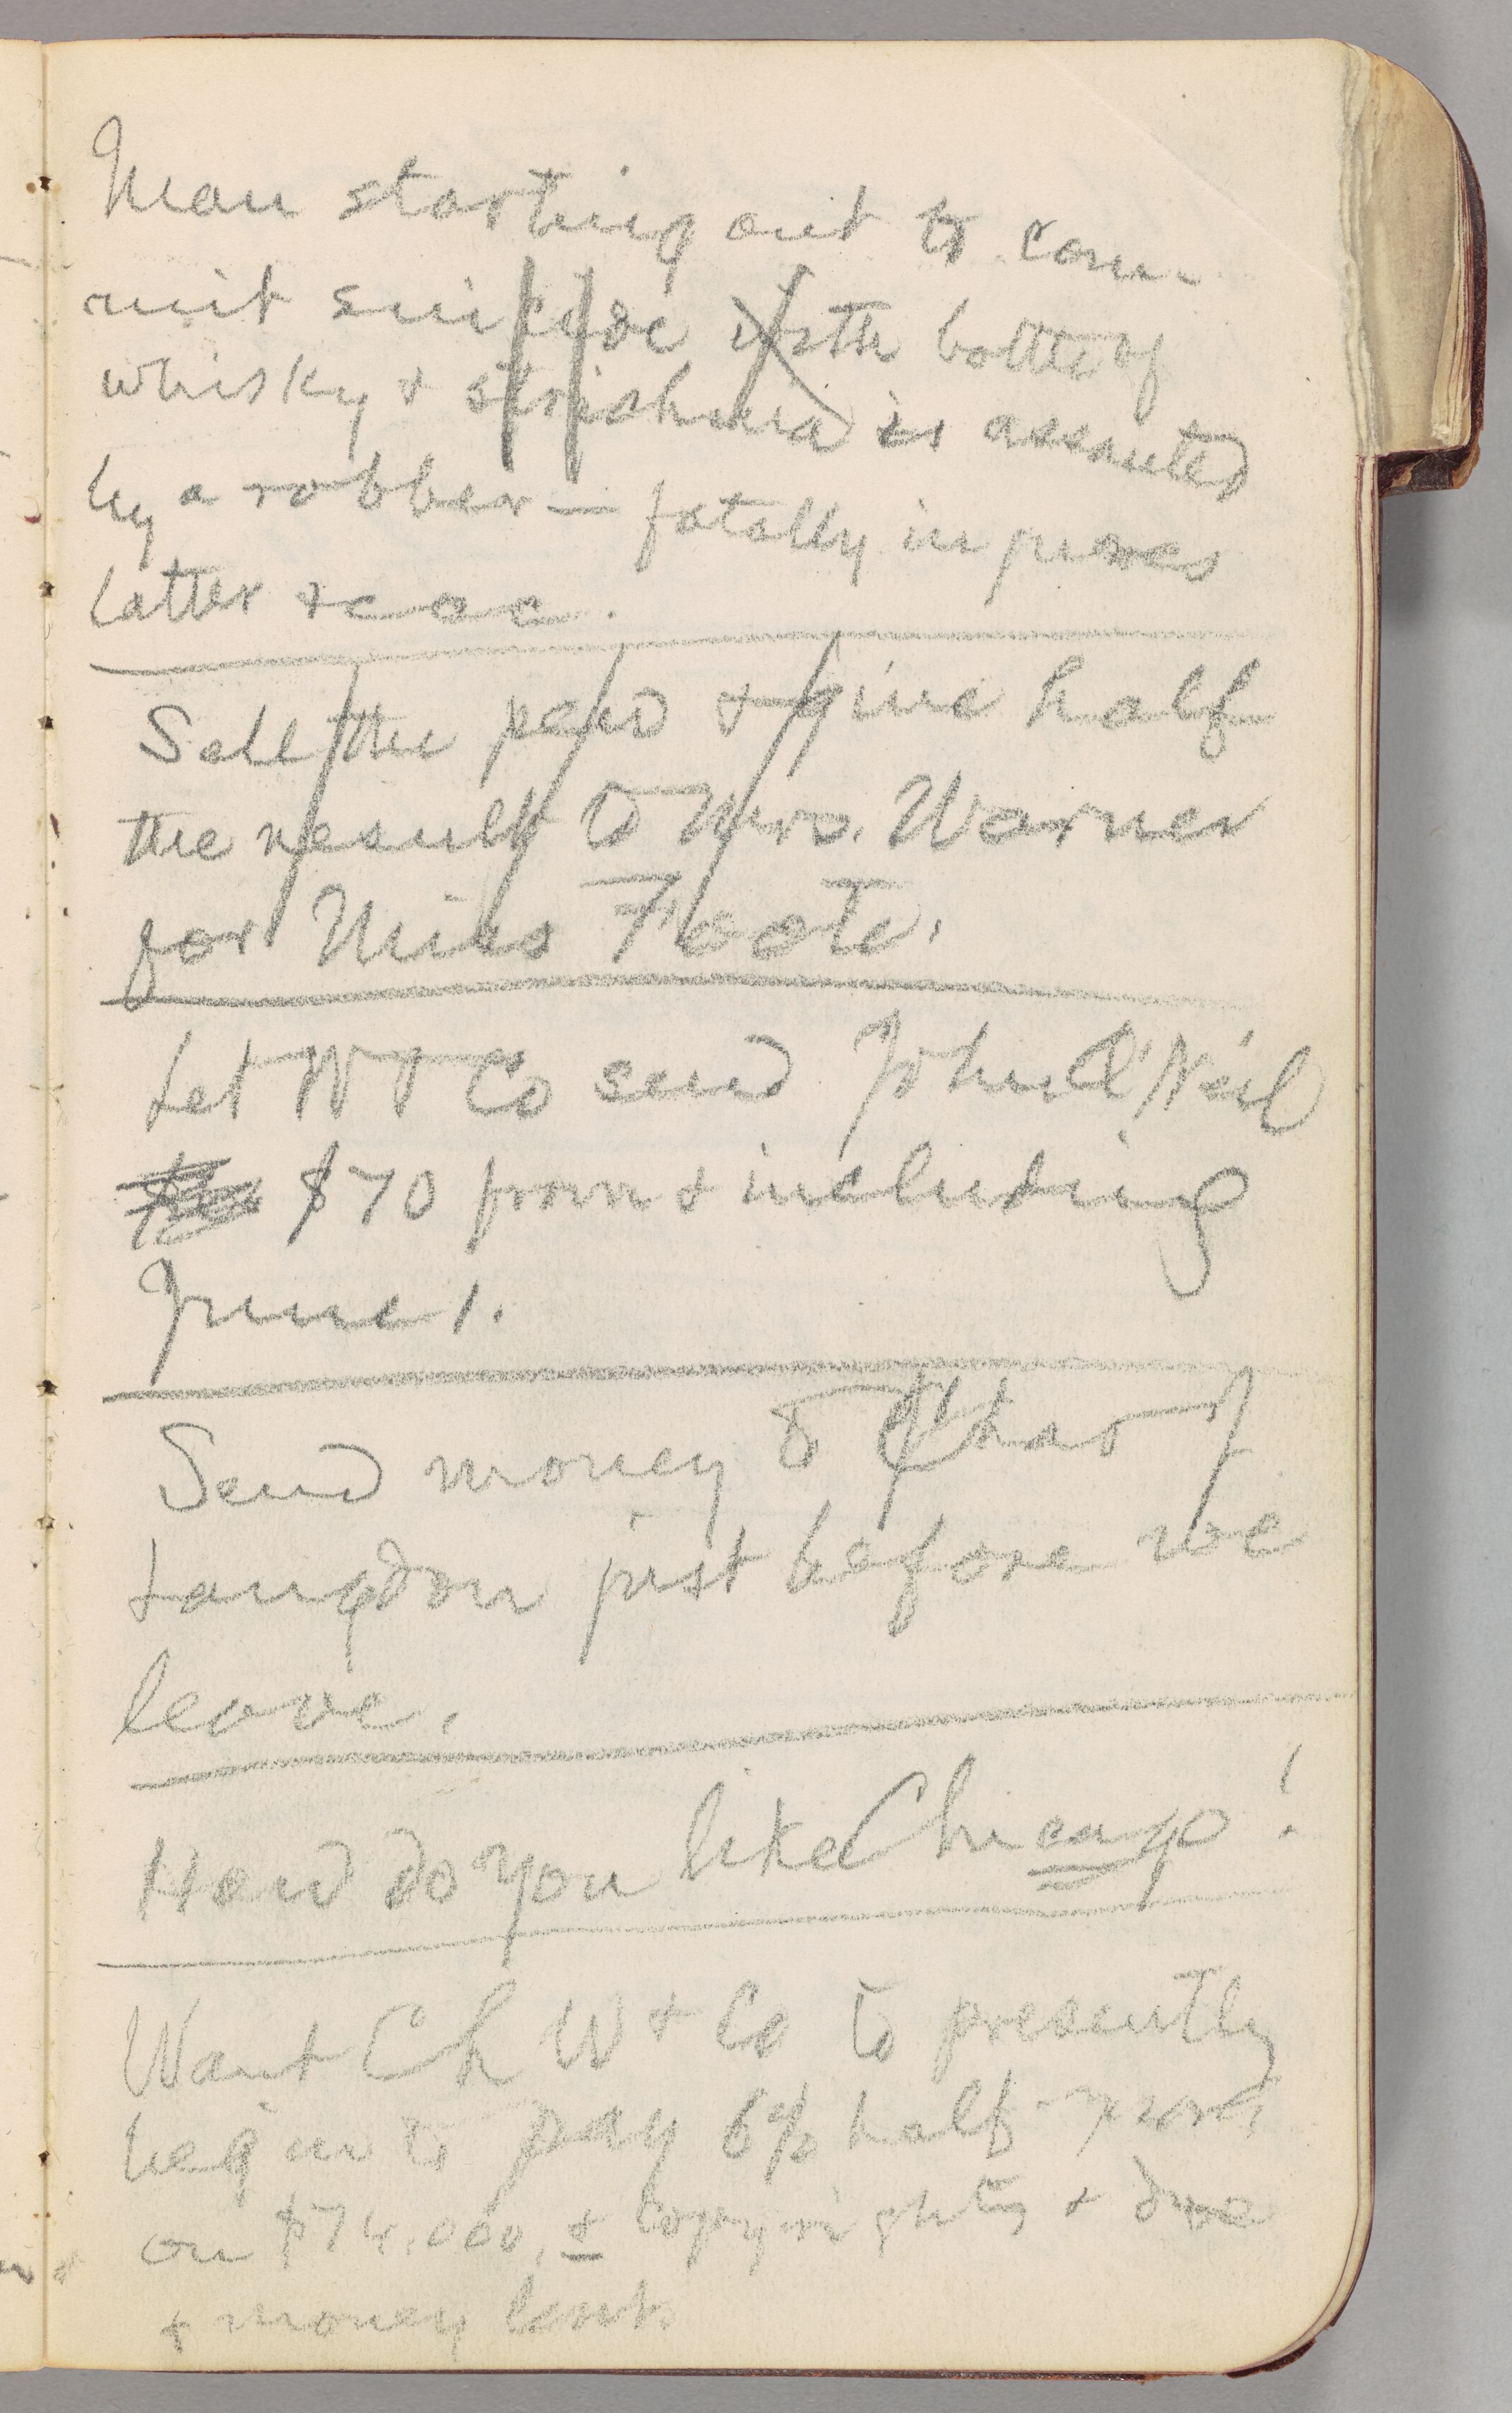 Man starting out to com-
mit suicide with bottle of
whisky & strichnia is accosted
by a robber — fatally in poses
latter &c &c.
Sell the pew & give half
the result to Mrs. Warner
for Miss Foote.
Let W & Co send John O'Neil
$70 from & including
June 1.
Send money to Chas J
Langdon just before we
leave.
How do you like Chicago!
Want Ch W & Co to presently
begin to pay 6% half-
on $74,000, & copyrights & due
& money lent